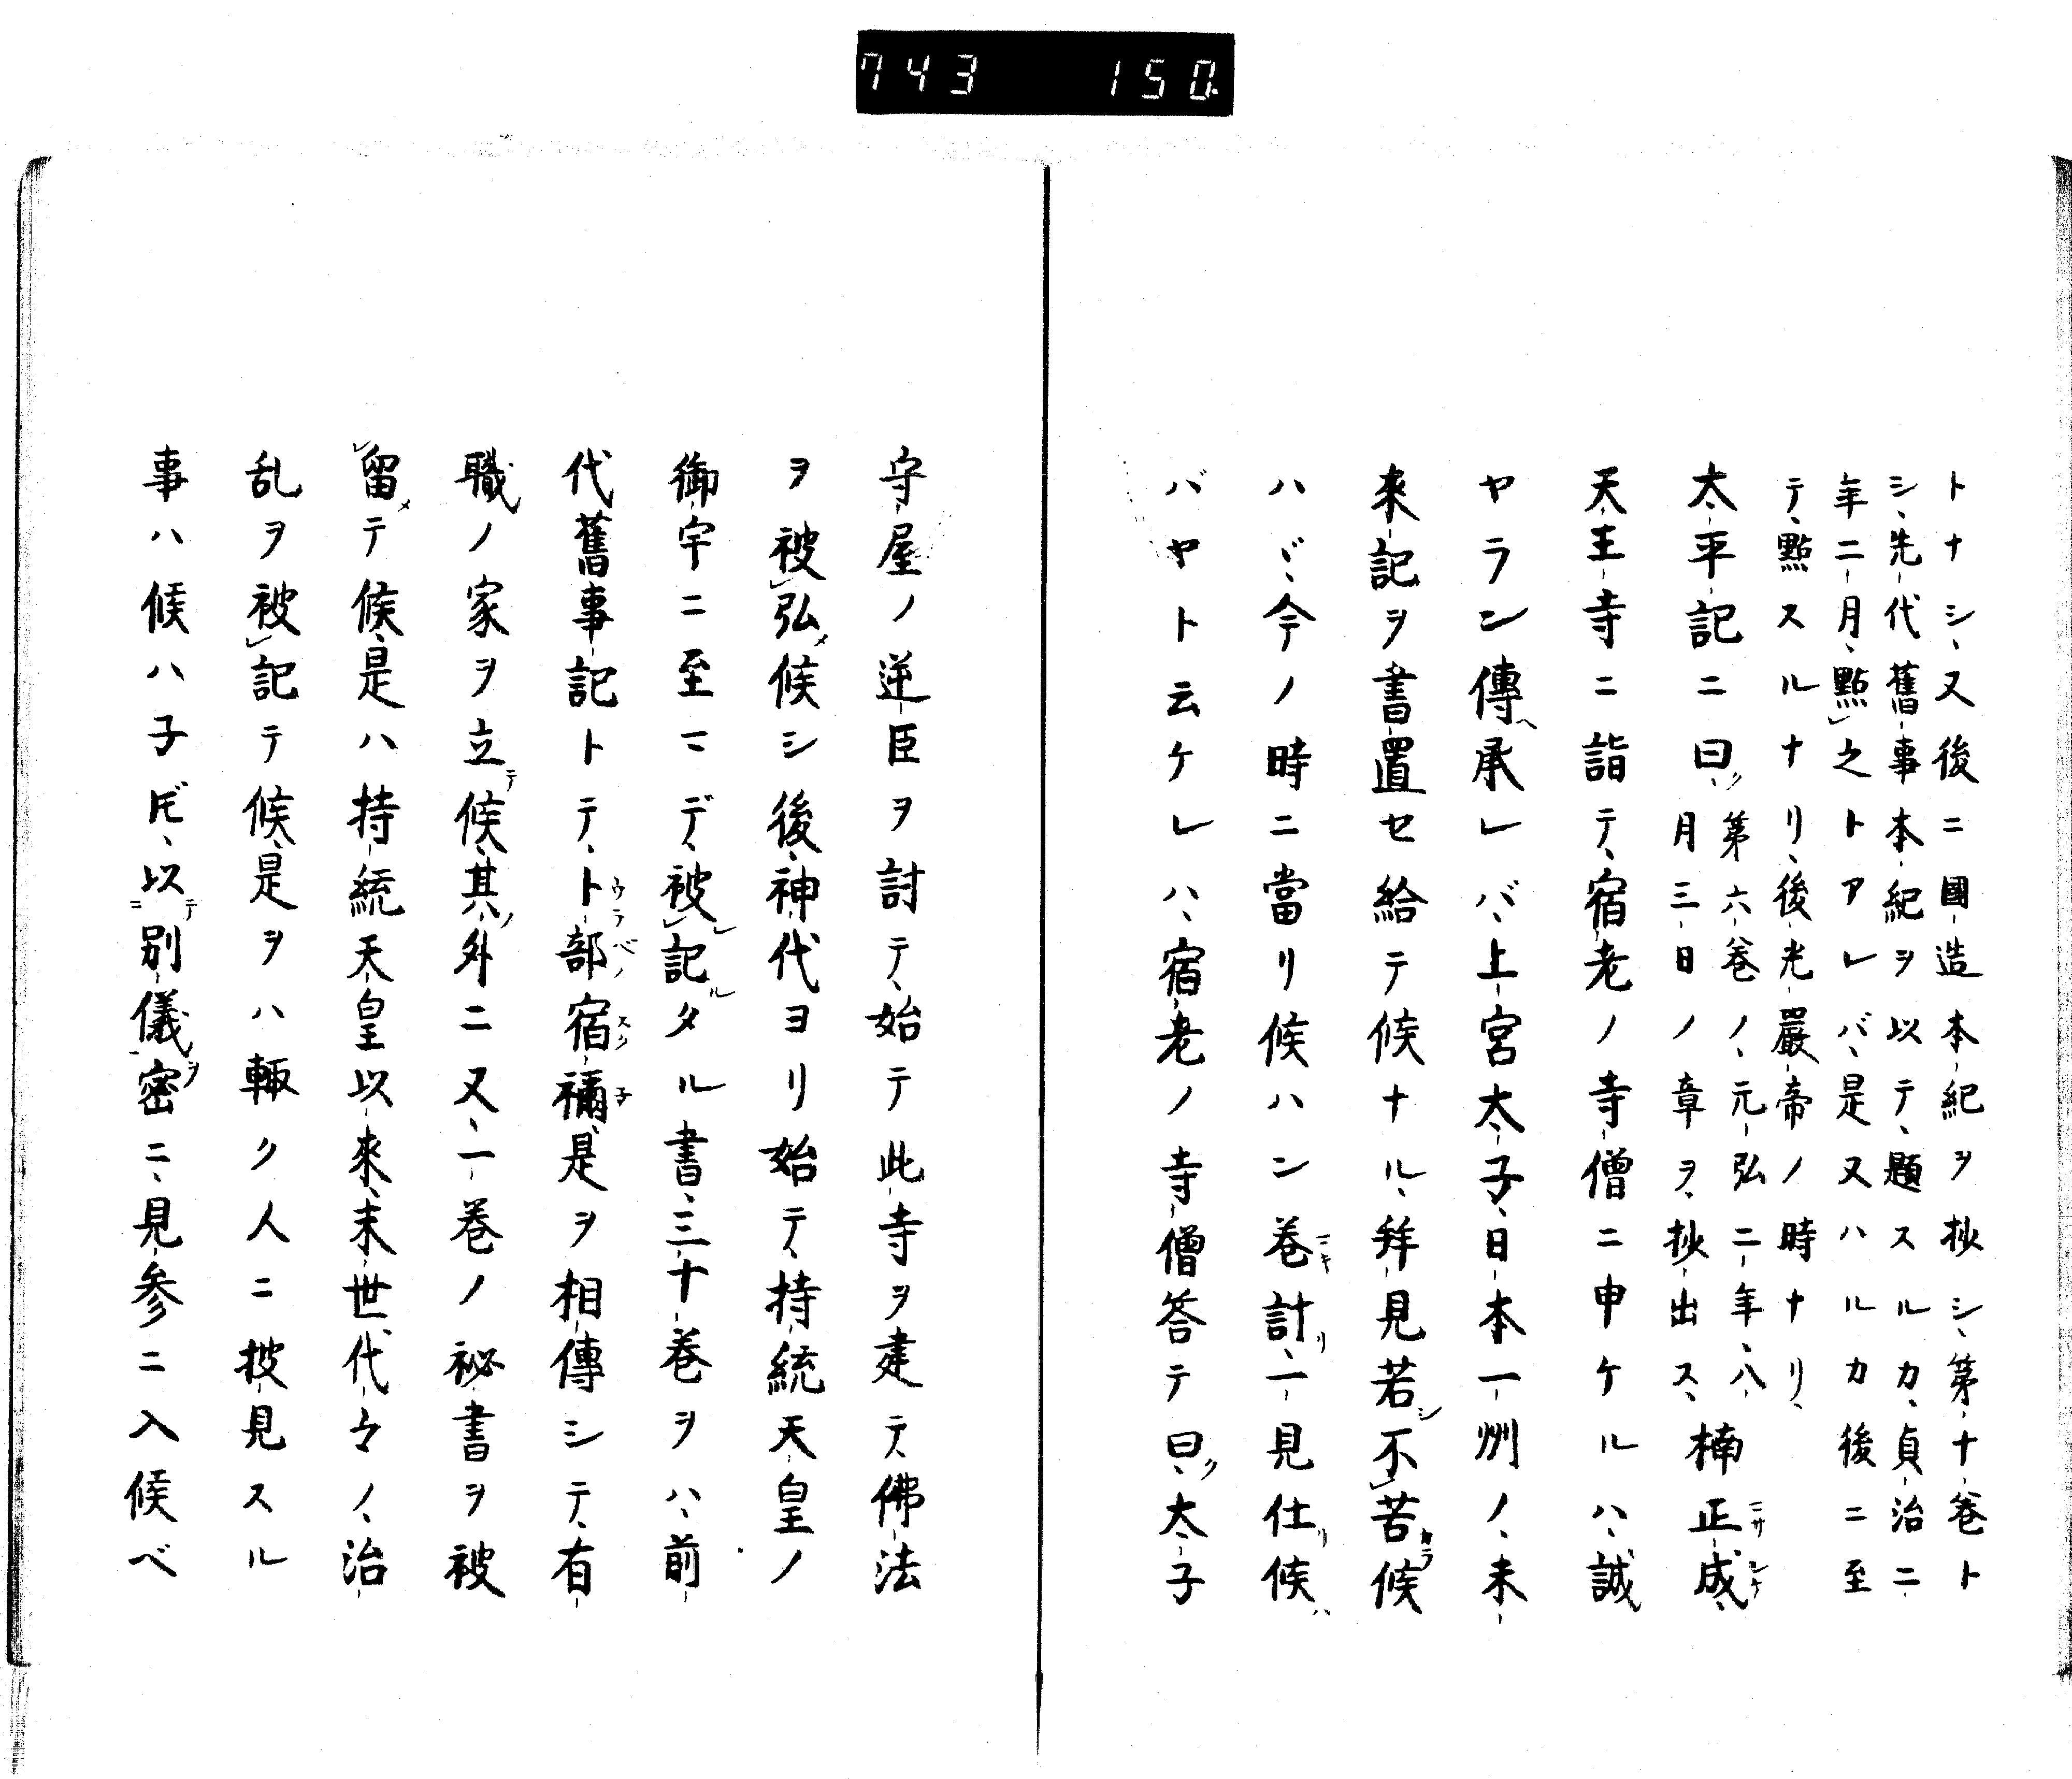 743 150
トナシ、又後ニ國造本紀ヲ抄シ、第十巻ト
シ、先代舊事本紀ヲ以テ、題スルカ、貞治二
年二月、點之トアレバ、是又ハルカ後ニ至
テ、點スルナリ、後光嚴帝ノ時ナリ、
太平記ニ曰、第六巻ノ、元弘二年、八
月三日ノ章ヲ、抄出ス、楠正成、
天王寺ニ詣テ、宿老ノ寺僧ニ申ケルハ、誠
ヤラン傳承レバ、上宮太子、日本一州ノ、未
來記ヲ書置セ給テ候ナル、拜見若不苦候
ハヾ、今ノ時ニ當リ候ハン巻計、一見仕候
バヤト云ケレハ、宿老ノ寺僧答テ曰、太子
守屋ノ逆臣ヲ討テ、始テ此寺ヲ建テ、佛法
ヲ被弘候シ後、神代ヨリ始テ、持統天皇ノ
御宇ニ至マデ、被記タル書、三十巻ヲハ、前
代舊事記トテ、卜部宿禰、是ヲ相傳シテ、有
職ノ家ヲ立候、其外ニ又、一巻ノ祕書ヲ被
留テ候、是ハ持統天皇以來、末世代々ノ、治
乱ヲ被記テ候、是ヲハ輙ク人ニ披見スル
事ハ候ハ子𪜈、以別儀密ニ、見参ニ入候ベ